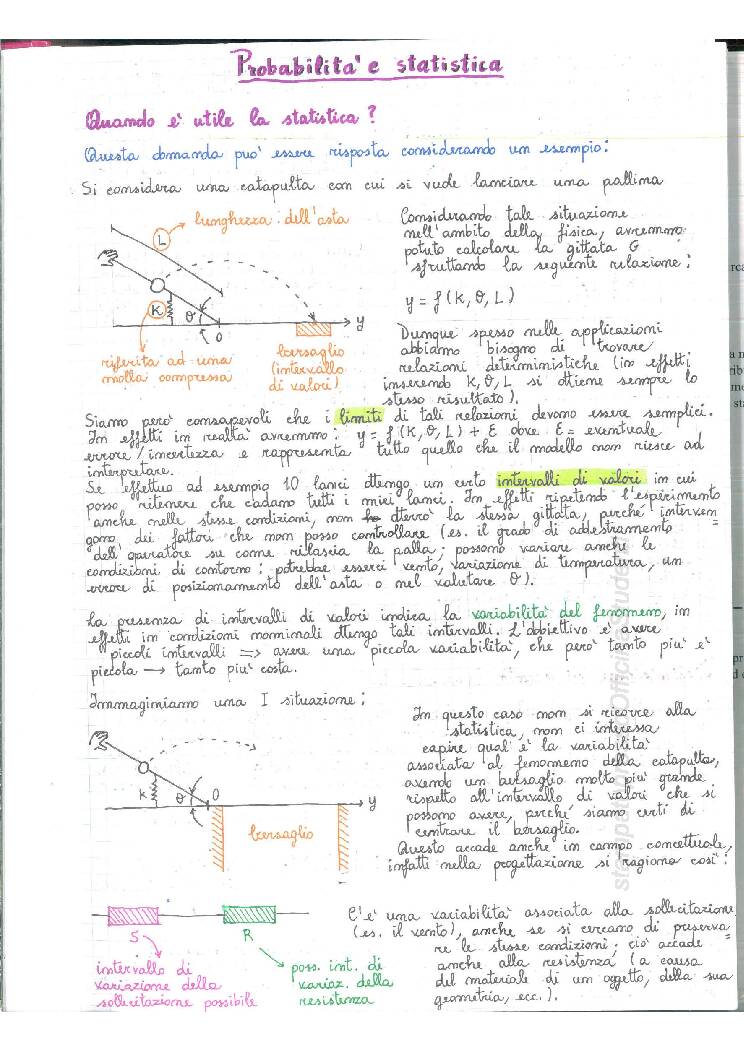 Probabilita' e statistica
Quando e' utile la statistica?
Questa domanda puo' essere risposta considerando un esempio:
Si considera una catapulta con cui si vuole lanciare una pallina
lunghezza dell'asta
L
K
ϑ
O
y
riferita ad una
molla compressa
bersaglio
(intervallo
di valori)
Considerando tale situazione
nell'ambito della fisica, avremmo
potuto calcolare la gittata G
sfruttando la seguente relazione:
y = f(K, ϑ, L)
Dunque spesso nelle applicazioni
abbiamo bisogno di trovare
relazioni deterministiche (in effetti
inserendo K, ϑ, L si ottiene sempre lo
stesso risultato).
Siamo pero' consapevoli che i limiti di tali relazioni devono essere semplici.
In effetti in realta' avremmo: y = f(K, ϑ, L) + E dove E = eventuale
errore/incertezza e rappresenta tutto quello che il modello non riesce ad
interpretare.
Se effettuo ad esempio 10 lanci ottengo un certo intervalli di valori in cui
posso ritenere che cadano tutti i miei lanci. In effetti ripetendo l'esperimento
anche nelle stesse condizioni, non otterro' la stessa gittata, perche' interven=
gono dei fattori che non posso controllare (es. il grado di addestramento
dell'operatore su come rilascia la palla; possono variare anche le
condizioni di contorno: potrebbe esserci vento, variazione di temperatura, un
errore di posizionamento dell'asta o nel valutare ϑ).
La presenza di intervalli di valori indica la variabilita' del fenomeno, in
effetti in condizioni nominali ottengo tali intervalli. L'obbiettivo e' avere
piccoli intervalli => avere una piccola variabilita', che pero' tanto piu' e'
piccola → tanto piu' costa.
Immaginiamo una I situazione:
K
ϑ
O
y
bersaglio
In questo caso non si ricorre alla
statistica, non ci interessa
capire qual e' la variabilita'
associata al fenomeno della catapulta,
avendo un bersaglio molto piu' grande
rispetto all'intervallo di valori che si
possono avere, perche' siamo certi di
centrare il bersaglio.
Questo accade anche in campo concettuale,
infatti nella progettazione si ragiona cosi':
S
R
intervallo di
variazione della
sollecitazione possibile
poss. int. di
variaz. della
resistenza
C'e' una variabilita' associata alla sollecitazione
(es. il vento), anche se si cercano di preserva=
re le stesse condizioni; cio' accade
anche alla resistenza (a causa
del materiale di un oggetto, della sua
geometria, ecc.).